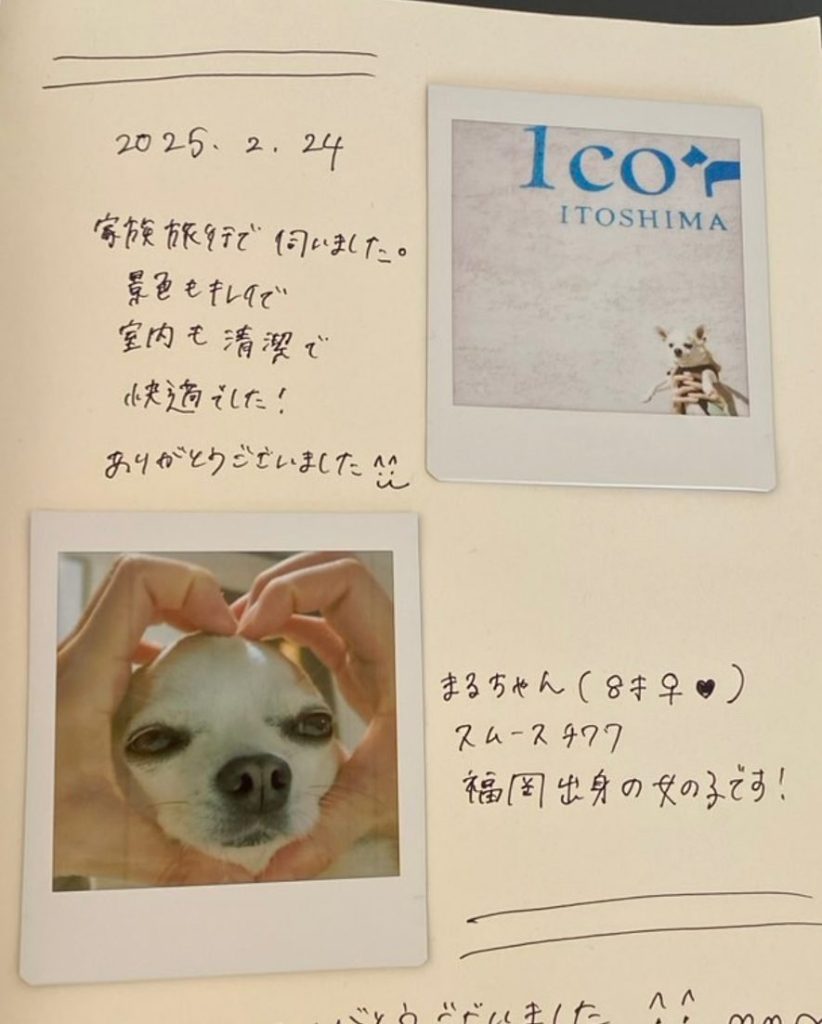 2025.2.24
家族旅行で伺いました。
景色もキレイで
室内も清潔で
快適でした!
ありがとうございました
1co
ITOSHIMA
まるちゃん(8才♀♥)
スムースチワワ
福岡出身の女の子です!
がとうございました